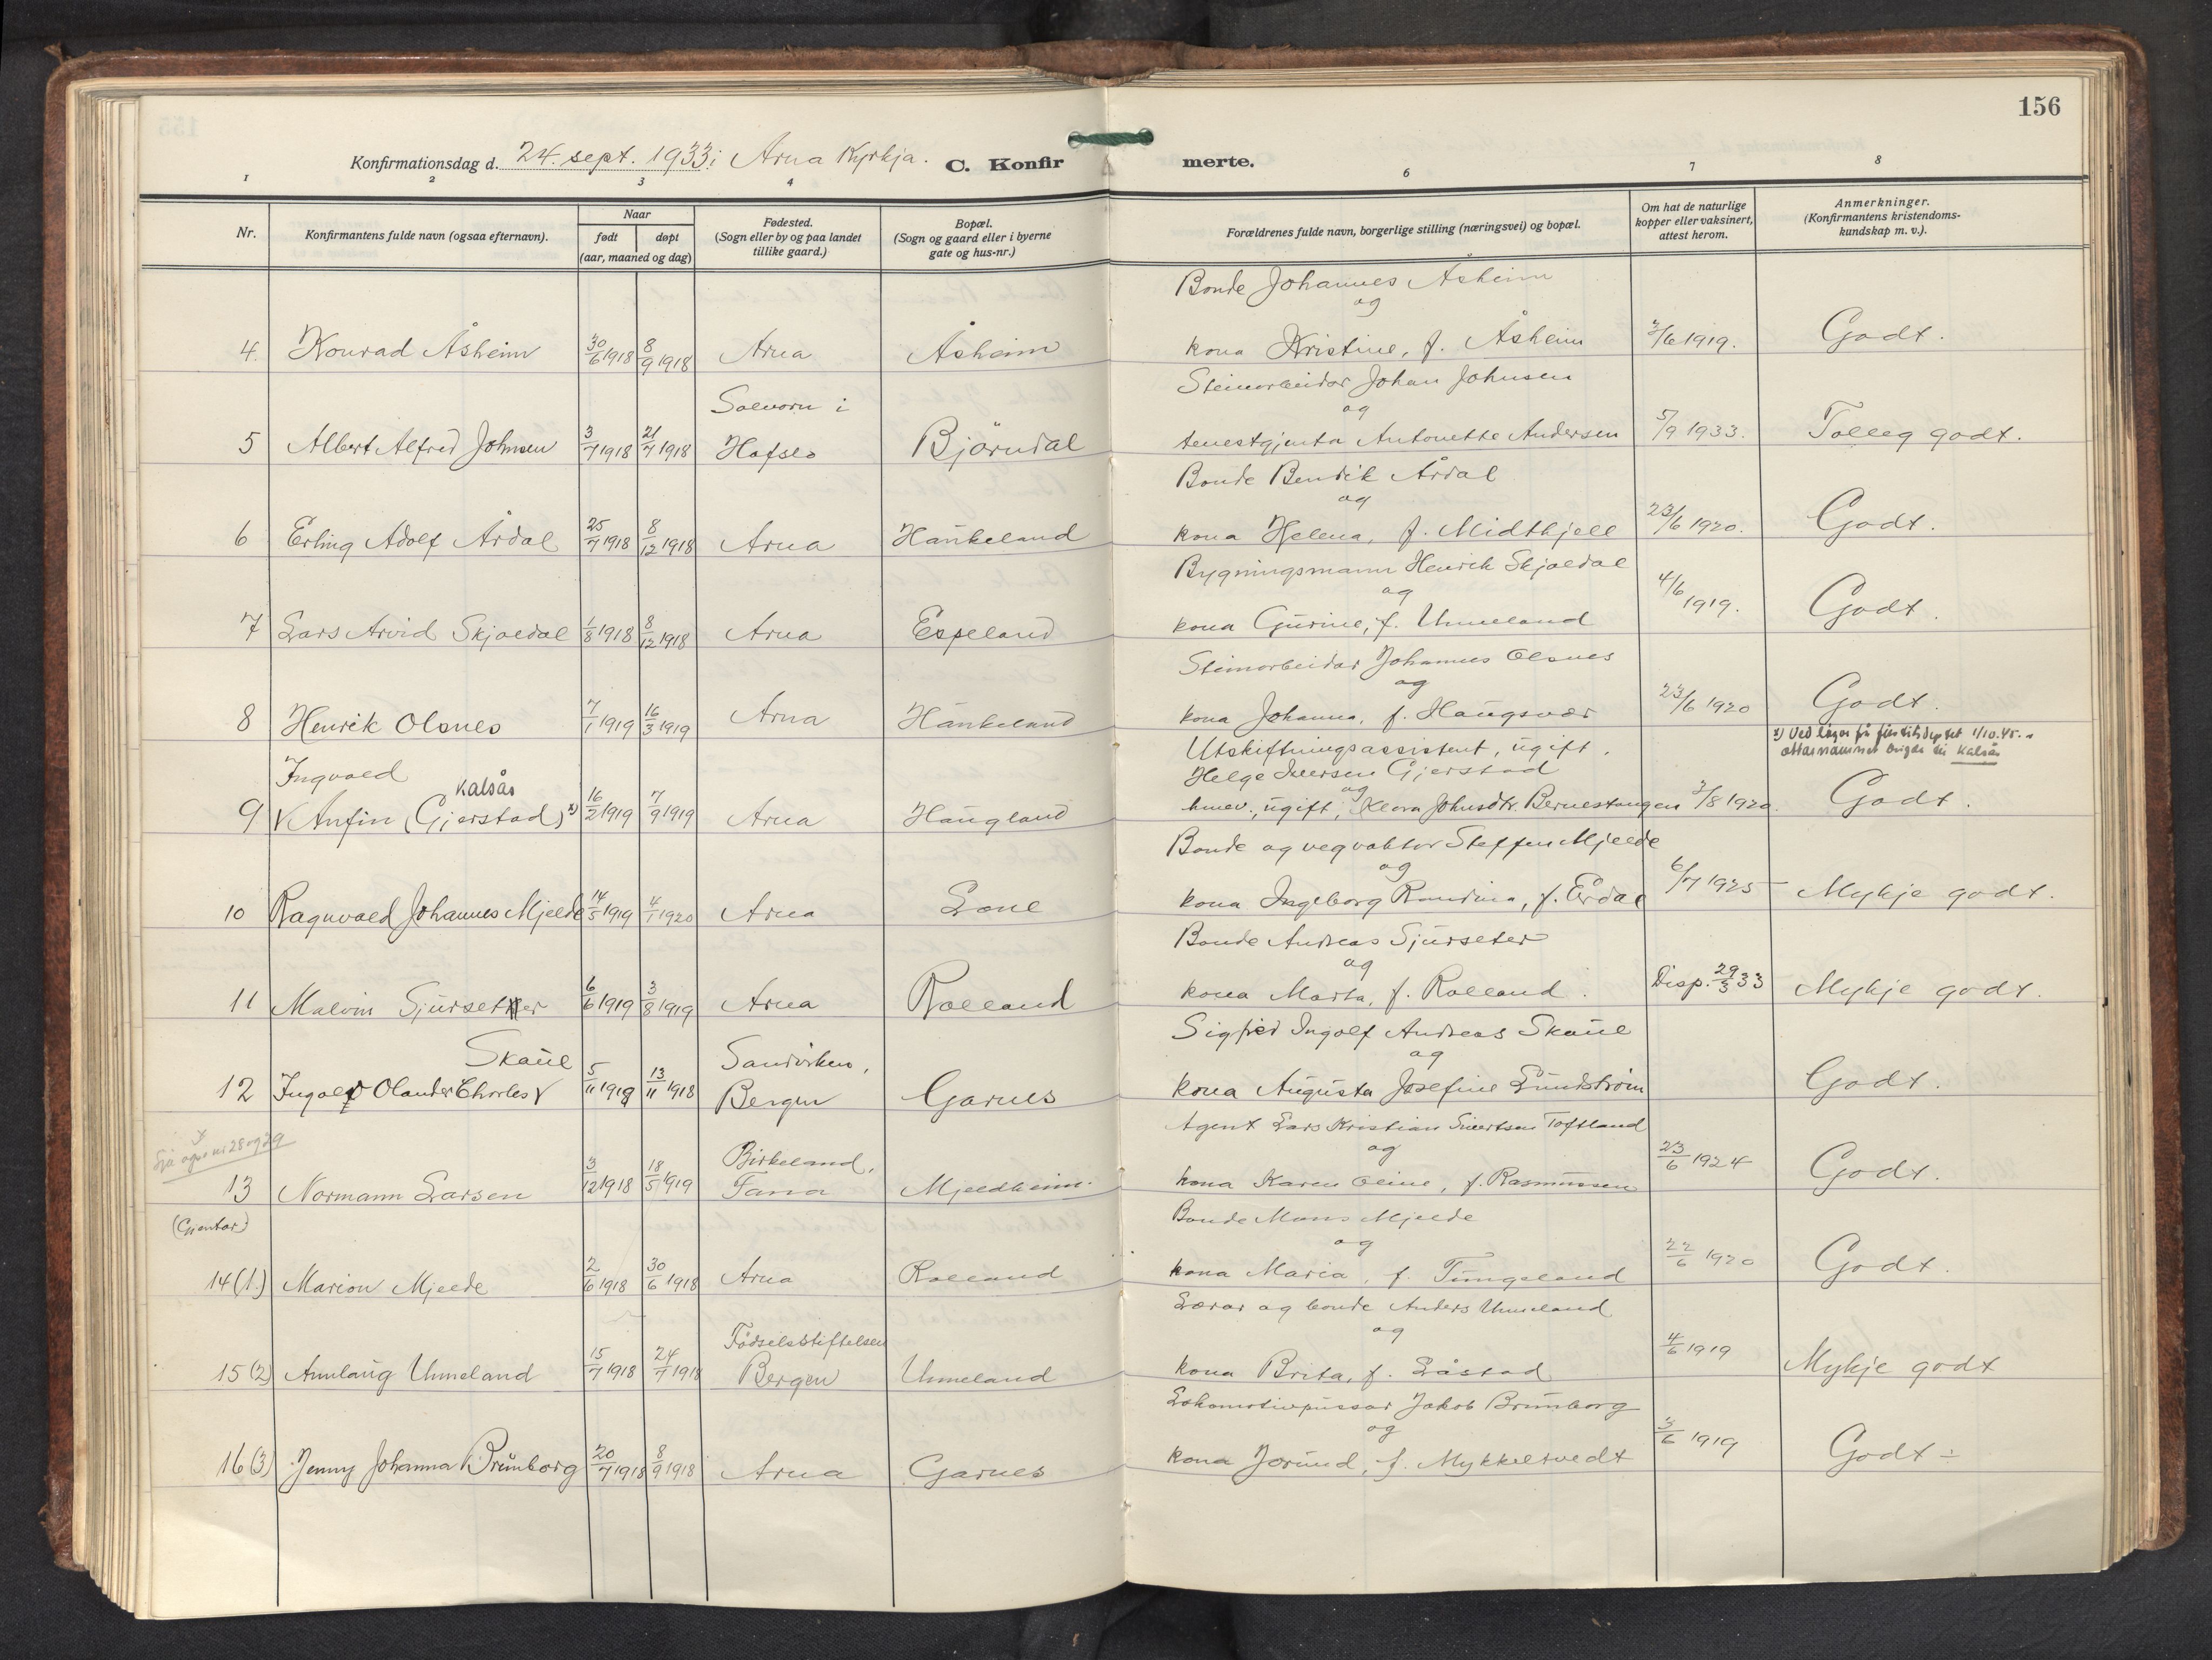 156
Konfirmationsdag d. 24. sept. 1933 i Arna Kyrkja. C. Konfir merte.
1 2 3 4 6 7 8
Nr.
Konfirmantens fulde navn (ogsaa efternavn).
Naar
født døpt
(aar, maaned og dag)
Fødested.
(Sogn eller by og paa landet
tillike gaard.)
Bopæl.
(Sogn og gaard eller i byerne
gate og hus-nr.)
Forældrenes fulde navn, borgerlige stilling (næringsvei) og bopæl.
Om hat de naturlige
kopper eller vaksinert,
attest herom.
Anmerkninger.
(Konfirmantens kristendoms-
kundskap m. v.).
Bonde Johannes Åsheim
og
4. Konrad Åsheim 30/6 1918 8/9 1918 Arna Åsheim kona Kristine, f. Åsheim 3/6 1919. Godt.
Steinarbeidar Johan Johnsen
Solvorn i og
5 Albert Alfred Johnsen 3/7 1918 21/7 1918 Hafslo Björndal tenestgjenta Antonette Andersen 5/9 1933. Tolleg godt.
Bonde Bendik Årdal
og
6 Erling Adolf Årdal 25/7 1918 8/12 1918 Arna Haukeland kona Helena, f. Midthjell 23/6 1920. Godt.
Bygningsmann Henrik Skjoldal
og
7 Lars Arvid Skjoldal 1/8 1918 8/12 1918 Arna Espeland kona Gurine, f. Unneland 4/6 1919. Godt.
Steinarbeidar Johannes Olsnes
og
8 Henrik Olsnes 7/1 1919 16/3 1919 Arna Haukeland kona Johanna, f. Haugsvær 23/6 1920 Godt.
Utskiftningsassistent, ugift.
x) Ved løyve frå justitsdep.tet 1/10.45.
ættarnamnet brigda til Kalsås
Ingvald Helge Iversen Gjerstad
Kalsås og
9 Anfin (Gjerstad) x) 16/2 1919 7/9 1919 Arna Haugland ugift, Klara Johnsdtr. Bernestangen 3/8 1920. Godt.
Bonde og vegvaktar Steffen Mjelde
og
10 Ragnvald Johannes Mjelde 14/5 1919 4/1 1920 Arna Lone kona Ingeborg Randina, f. Erdal 6/7 1925 Mykje godt.
Bonde Andreas Sjurseter
og
11 Malvin Sjurseter 6/6 1919 3/8 1919 Arna Rolland kona Marta, f. Rolland. Disp. 29/3 33 Mykje godt.
Sigfred Ingolf Andreas Skaue
Skaue Sandviken, og
12 Ingolf Olander Charles 5/11 1918 13/11 1918 Bergen Garnes kona Augusta Josefine Lundström Godt.
Agent Lars Kristian Sivertsen Toftland
Sjå også nr 28 og 29 Birkeland, og
13 Normann Larsen 3/12 1918 18/5 1919 Fana Mjeldheim. kona Karen Oline, f. Rasmussen 23/6 1924 Godt.
(Gjentor) Bonde Mons Mjelde
og
14 (1.) Marion Mjelde 2/6 1918 30/6 1918 Arna Rolland kona Maria, f. Tungeland 22/6 1920 Godt.
Lærar og bonde Anders Unneland
Födselsstiftelsen og
15 (2) Aunlaug Unneland 15/7 1918 24/7 1918 Bergen Unneland kona Brita, f. Låstad 4/6 1919 Mykje godt
Lokomotivpussar Jakob Brunborg
og
16 (3) Jenny Johanna Brunborg 20/7 1918 8/9 1918 Arna Garnes kona Jorund, f. Mykkeltvedt 3/6 1919 Godt ÷